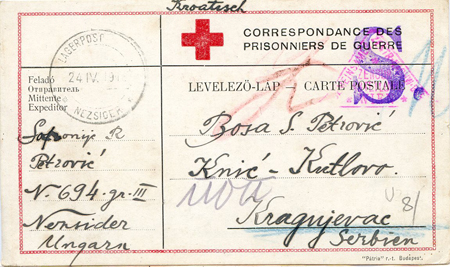 Kroatisch
CORRESPONDANCE DES
PRISONNIERS DE GUERRE
LAGERPOST
24 IV. 191
NEZSIDER
Feladó
Отправитель
Mittente
Expeditor
LEVELEZŐ-LAP — CARTE POSTALE
Sofronije R
Petrović
N. 694. gr. III
Nensider
Ungarn
Bosa S. Petrović
Knić - Kutlovo.
Kragujevac
Serbien
8/
"Pátria" r.-t. Budapest.